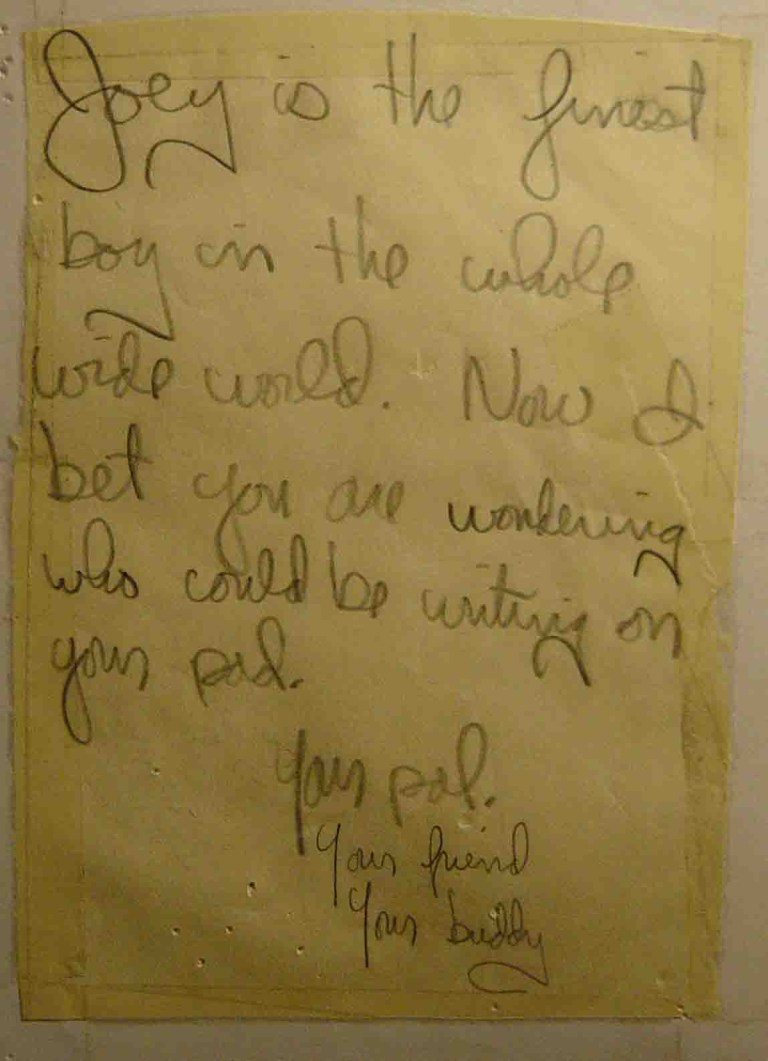 Joey is the finest
boy in the whole
wide world. Now I
bet you are wondering
who could be writing on
your pad.
Your pal.
Your friend
Your buddy